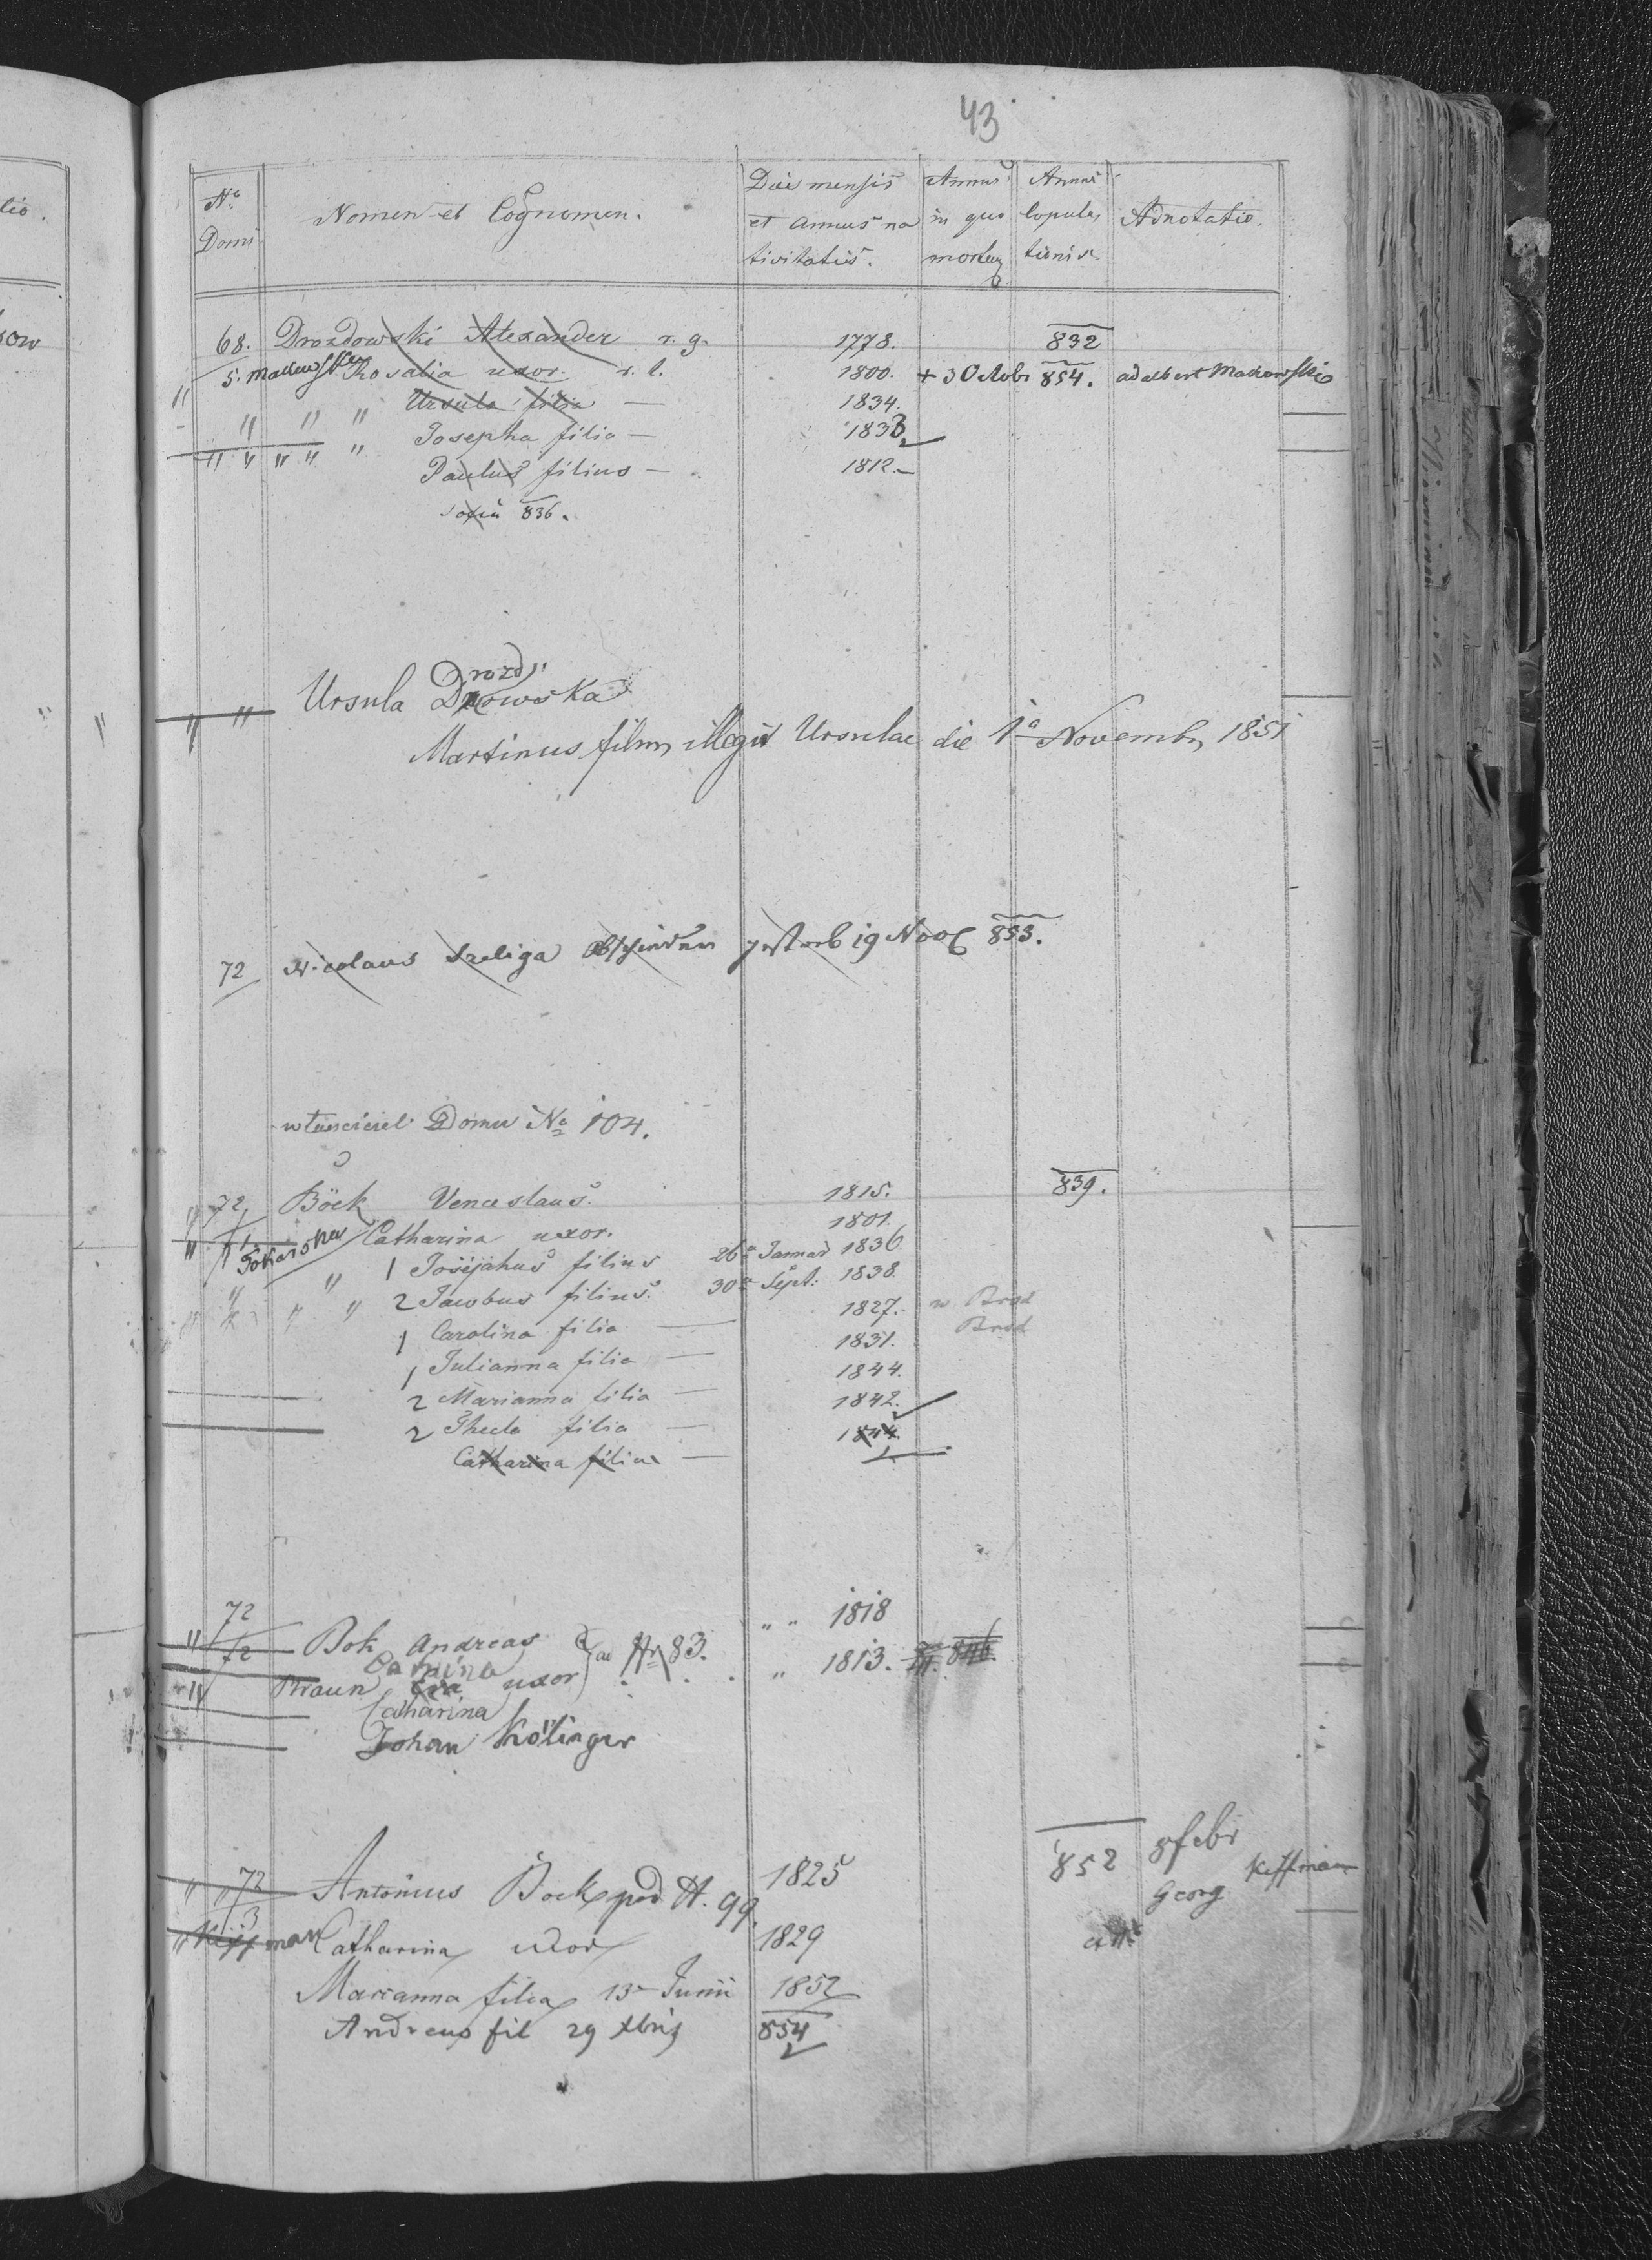 43
No Domi
Nomen et Cognomen.
Die mensis et annus nativitatis.
Annus in quo mortuus
Annus copulationis
Adnotatio.
68. Drozdowski Alexander r. g. 1778. 832
5. Makowska Rosalia uxor. r. l. 1800. + 3 Octobr 854. adalbert Makowski
" Ursula filia — 1834.
" " " Josepha filia — 1833
" " " " " Paulus filius — 1812.—
sofia 836.
Ursula Drozdowska
" "
Martinus filius illegit Ursulae die 1a Novembr 1851
72 Nicolaus Szeliga 19 Nov 853.
własciciel Domu No 104.
" 72/1 Böck Venceslaus. 1815. 839.
Tokarska Catharina uxor. 1801.
" " 1 Josephus filius 26a Januar 1836
" " " 2 Jacobus filius. 30a Sept: 1838.
1 Carolina filia — 1827. w Brod
1 Julianna filia — 1831. Brod
2 Marianna filia — 1844.
2 Thecla filia — 1842.
Catharina filia — 1844.
72/2 Bok Andreas ad Nr 83. " " 1818
Carolina
Braun Eva uxor " 1813. 846.
Catharina
Johan Kölinger
" " 72/3 Antonius Bock pod N. 99. 1825 852 8 febr
Georg Kiffman
" Kiffman Catharina uxor 1829
Marianna filia 13 Junii 1852
Andreas fil 29 Xbris 854